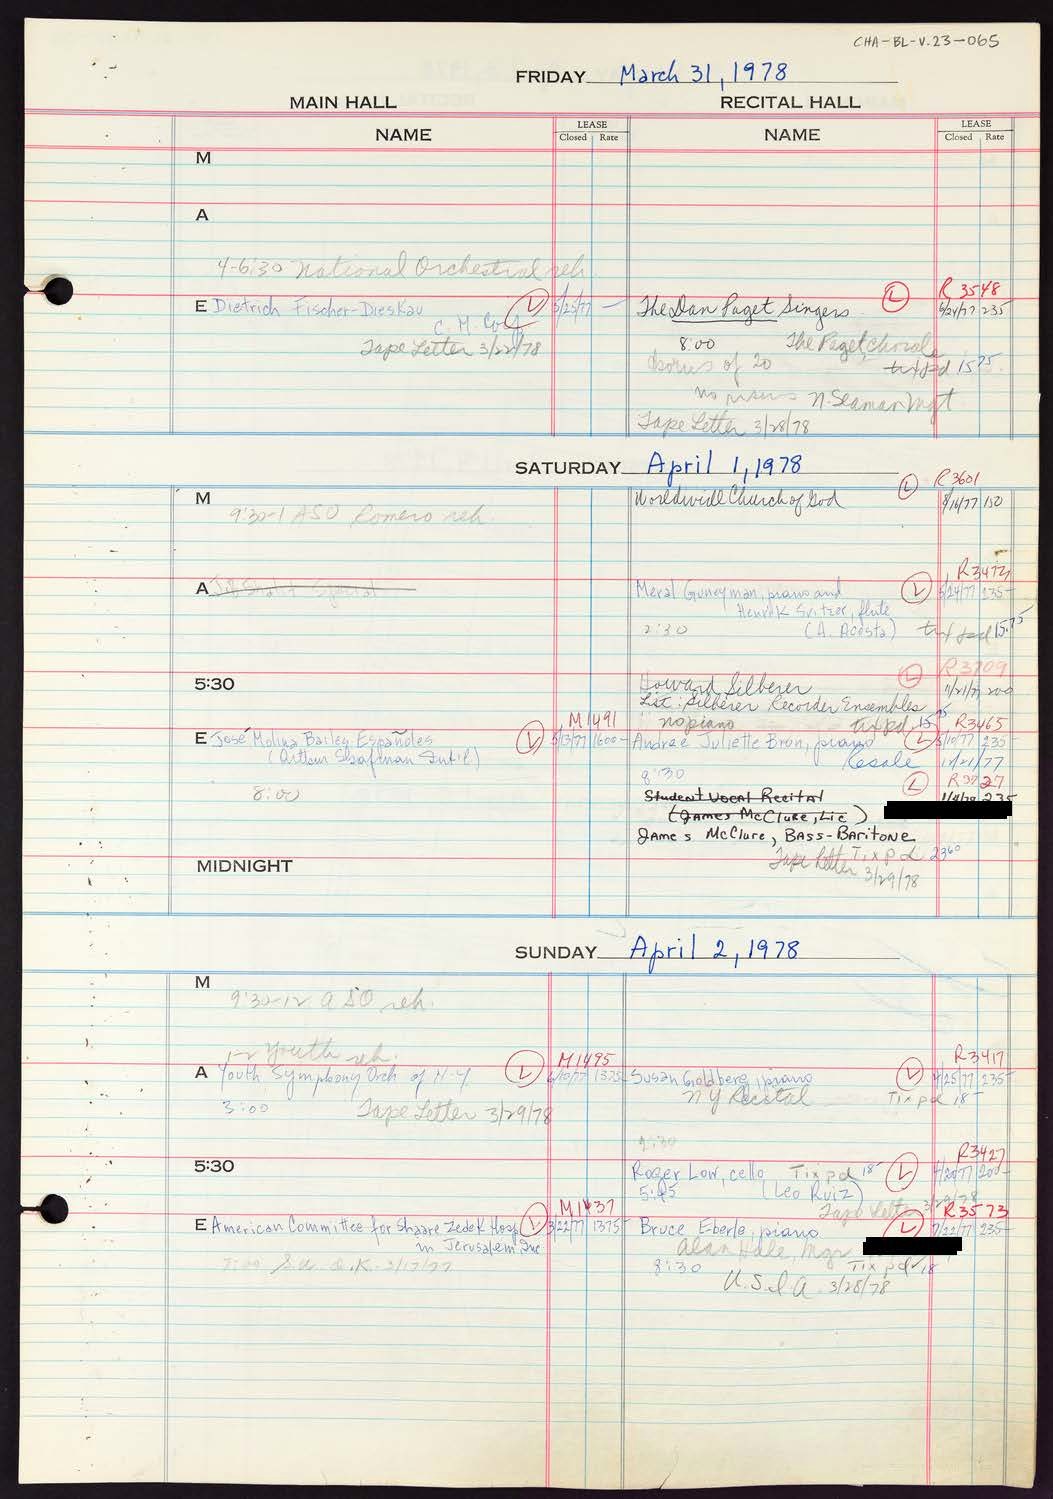 CHA-BL-V.23-065
FRIDAY March 31, 1978
MAIN HALL RECITAL HALL
NAME LEASE Closed Rate NAME LEASE Closed Rate
M
A
4-6:30 National Orchestral reh.
E Dietrich Fischer-Dieskau L 5/25/77 —
C. M. Corp
Tape Letter 3/22/78
L R 3548
The Dan Paget Singers 6/24/77 235
8:00 The Paget Chorale
chorus of 20 tix pd 15 75
no risers N. Seaman Mgt
Tape Letter 3/28/78
SATURDAY April 1, 1978
L R3601
M Worldwide Church of God 8/16/77 150
9:30-1 ASO Romero reh.
R3473
A
Meral Guneyman, piano and L 5/24/77 235-
Henrik Svitzer, flute
2:30 (A. Acosta) tix pd 15.75
5:30
L R3709
Howard Silberer 11/21/77 200
List: Silberer Recorder Ensembles
no piano tix pd. 15 75
M1491 R3465
E José Molina Bailes Españoles L 5/13/77 1600-
(Arthur Shafman Intil)
8:00
Andrée Juliette Brun, piano L 5/10/77 235-
Resale 12/21/77
8:30 L R3727
Student Vocal Recital 1/4/78 235
(James McClure, Lic)
James McClure, Bass-Baritone
Tix pd 23 60
Tape Letter 3/29/78
MIDNIGHT
SUNDAY April 2, 1978
M
9:30-12 ASO reh.
1-2 Youth reh.
M1495 R3417
A Youth Symphony Orch of N-Y L 6/10/77 1375-
3:00 Tape Letter 3/29/78
Susan Goldberg, piano L 4/25/77 235-
NY Recital Tix pd 18-
5:30
R3427
Roger Low, cello Tix pd 18- L 4/20/77 200-
5:45 (Leo Ruiz)
Tape Letter 3/29/78
M1437 R3573
E American Committee for Shaare Zedek Hosp L 3/22/77 1375-
in Jerusalem Inc
O.K. 3/17/77
Bruce Eberle, piano L 7/22/77 235-
Alan Hale, Mgr
8:30 Tix pd 18
U.S.I.A. 3/28/78